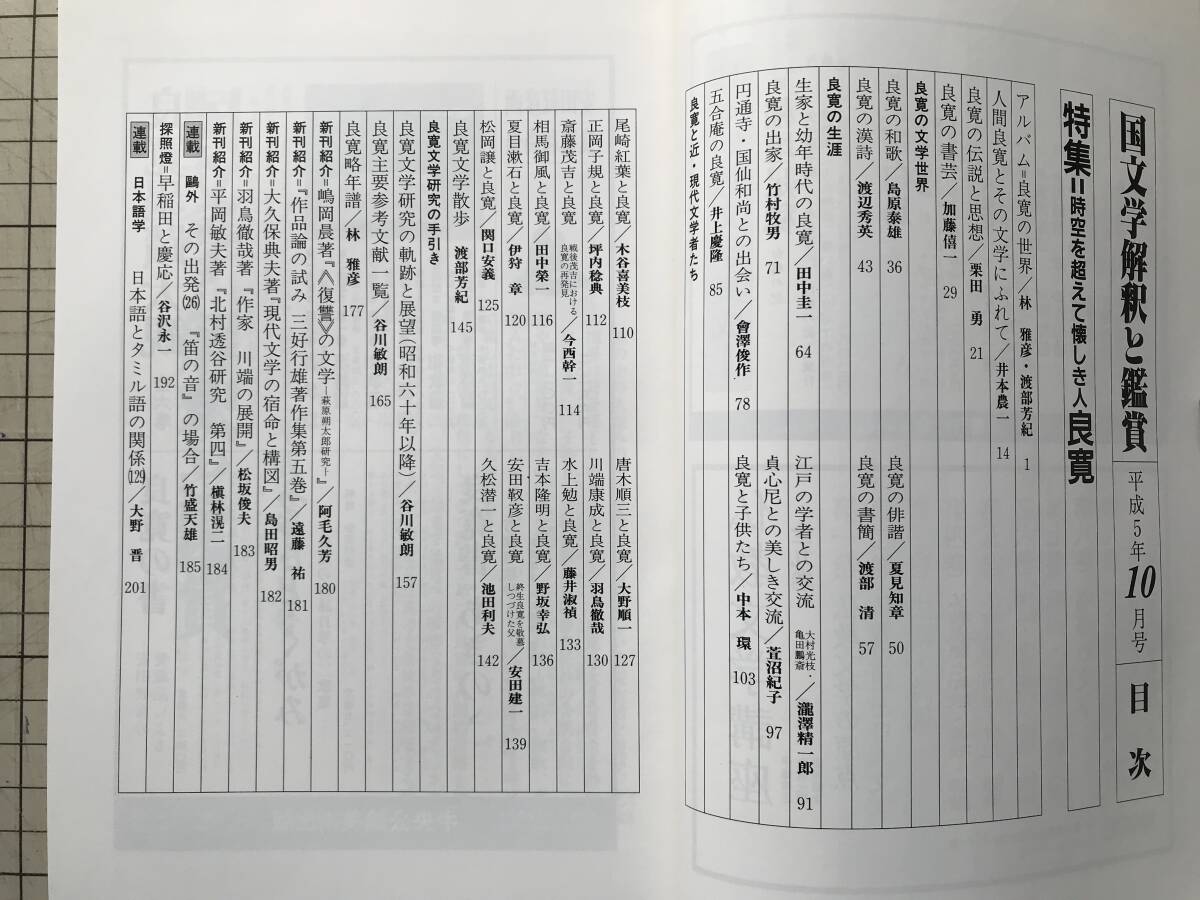 国文学解釈と鑑賞 平成5年10月号 目次
特集=時空を超えて懐しき人良寛
アルバム=良寛の世界/林 雅彦・渡部芳紀 1
人間良寛とその文学にふれて/井本農一 14
良寛の伝説と思想/栗田 勇 21
良寛の書芸/加藤僖一 29
良寛の文学世界
良寛の和歌/島原泰雄 36
良寛の俳諧/夏見知章 50
良寛の漢詩/渡辺秀英 43
良寛の書簡/渡部 清 57
良寛の生涯
生家と幼年時代の良寛/田中圭一 64
江戸の学者との交流 大村光枝・亀田鵬斎/瀧澤精一郎 91
良寛の出家/竹村牧男 71
貞心尼との美しき交流/萱沼紀子 97
円通寺・国仙和尚との出会い/會澤俊作 78
良寛と子供たち/中本 環 103
五合庵の良寛/井上慶隆 85
良寛と近・現代文学者たち
尾崎紅葉と良寛/木谷喜美枝 110
唐木順三と良寛/大野順一 127
正岡子規と良寛/坪内稔典 112
川端康成と良寛/羽鳥徹哉 130
斎藤茂吉と良寛 戦後茂吉における良寛の再発見/今西幹一 114
水上勉と良寛/藤井淑禎 133
相馬御風と良寛/田中榮一 116
吉本隆明と良寛/野坂幸弘 136
夏目漱石と良寛/伊狩 章 120
安田靫彦と良寛 終生良寛を敬慕しつづけた父/安田建一 139
松岡譲と良寛/関口安義 125
久松潜一と良寛/池田利夫 142
良寛文学散歩 渡部芳紀 145
良寛文学研究の手引き
良寛文学研究の軌跡と展望(昭和六十年以降)/谷川敏朗 157
良寛主要参考文献一覧/谷川敏朗 165
良寛略年譜/林 雅彦 177
新刊紹介=嶋岡晨著『《復讐》の文学―萩原朔太郎研究―』/阿毛久芳 180
新刊紹介=『作品論の試み 三好行雄著作集第五巻』/遠藤 祐 181
新刊紹介=大久保典夫著『現代文学の宿命と構図』/島田昭男 182
新刊紹介=羽鳥徹哉著『作家 川端の展開』/松坂俊夫 183
新刊紹介=平岡敏夫著『北村透谷研究 第四』/槇林滉二 184
連載 鷗外 その出発(26) 『笛の音』の場合/竹盛天雄 185
探照燈=早稲田と慶応/谷沢永一 192
連載 日本語学 日本語とタミル語の関係(129)/大野 晋 201